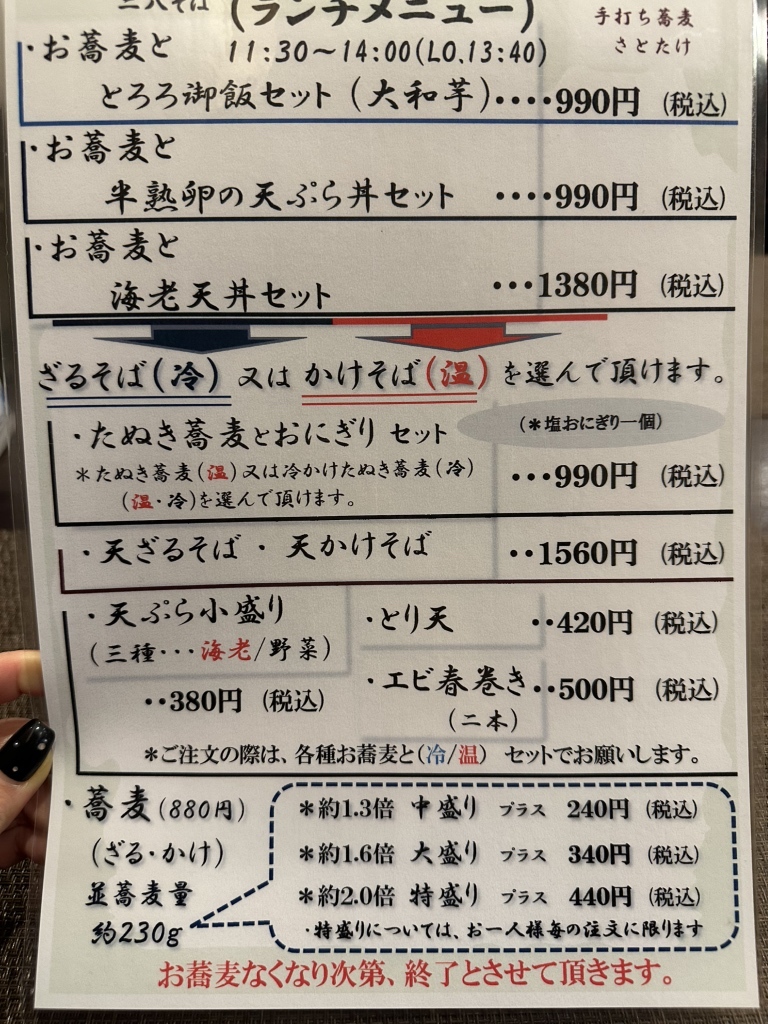 二八そば (ランチメニュー)
手打ち蕎麦
さとたけ
・お蕎麦と 11:30～14:00(LO.13:40)
とろろ御飯セット (大和芋)・・・・990円 (税込)
・お蕎麦と
半熟卵の天ぷら丼セット ・・・・990円 (税込)
・お蕎麦と
海老天丼セット ・・・1380円 (税込)
ざるそば(冷) 又は かけそば(温) を選んで頂けます。
・たぬき蕎麦とおにぎり セット (*塩おにぎり一個)
*たぬき蕎麦(温)又は冷かけたぬき蕎麦(冷) ・・・990円 (税込)
(温・冷)を選んで頂けます。
・天ざるそば・天かけそば ・・1560円 (税込)
・天ぷら小盛り
(三種・・・海老/野菜)
・・380円 (税込)
・とり天 ・・420円 (税込)
・エビ春巻き・・500円 (税込)
(二本)
*ご注文の際は、各種お蕎麦と(冷/温) セットでお願いします。
・蕎麦(880円)
(ざる・かけ)
並蕎麦量
約230g
*約1.3倍 中盛り プラス 240円 (税込)
*約1.6倍 大盛り プラス 340円 (税込)
*約2.0倍 特盛り プラス 440円 (税込)
・特盛りについては、お一人様毎の注文に限ります
お蕎麦なくなり次第、終了とさせて頂きます。